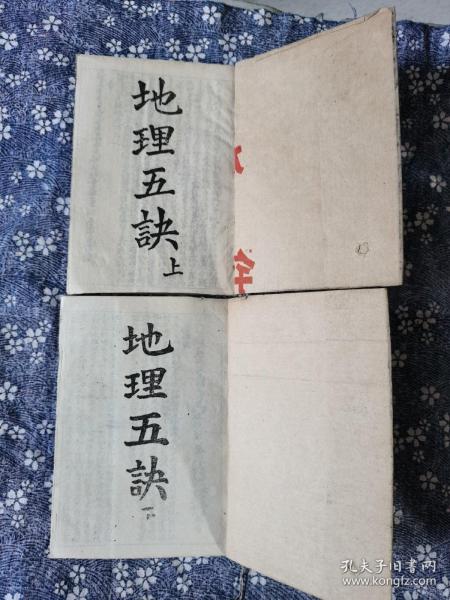 地理五訣
上
地理五訣
下
孔夫子旧书网
www.kongfz.com